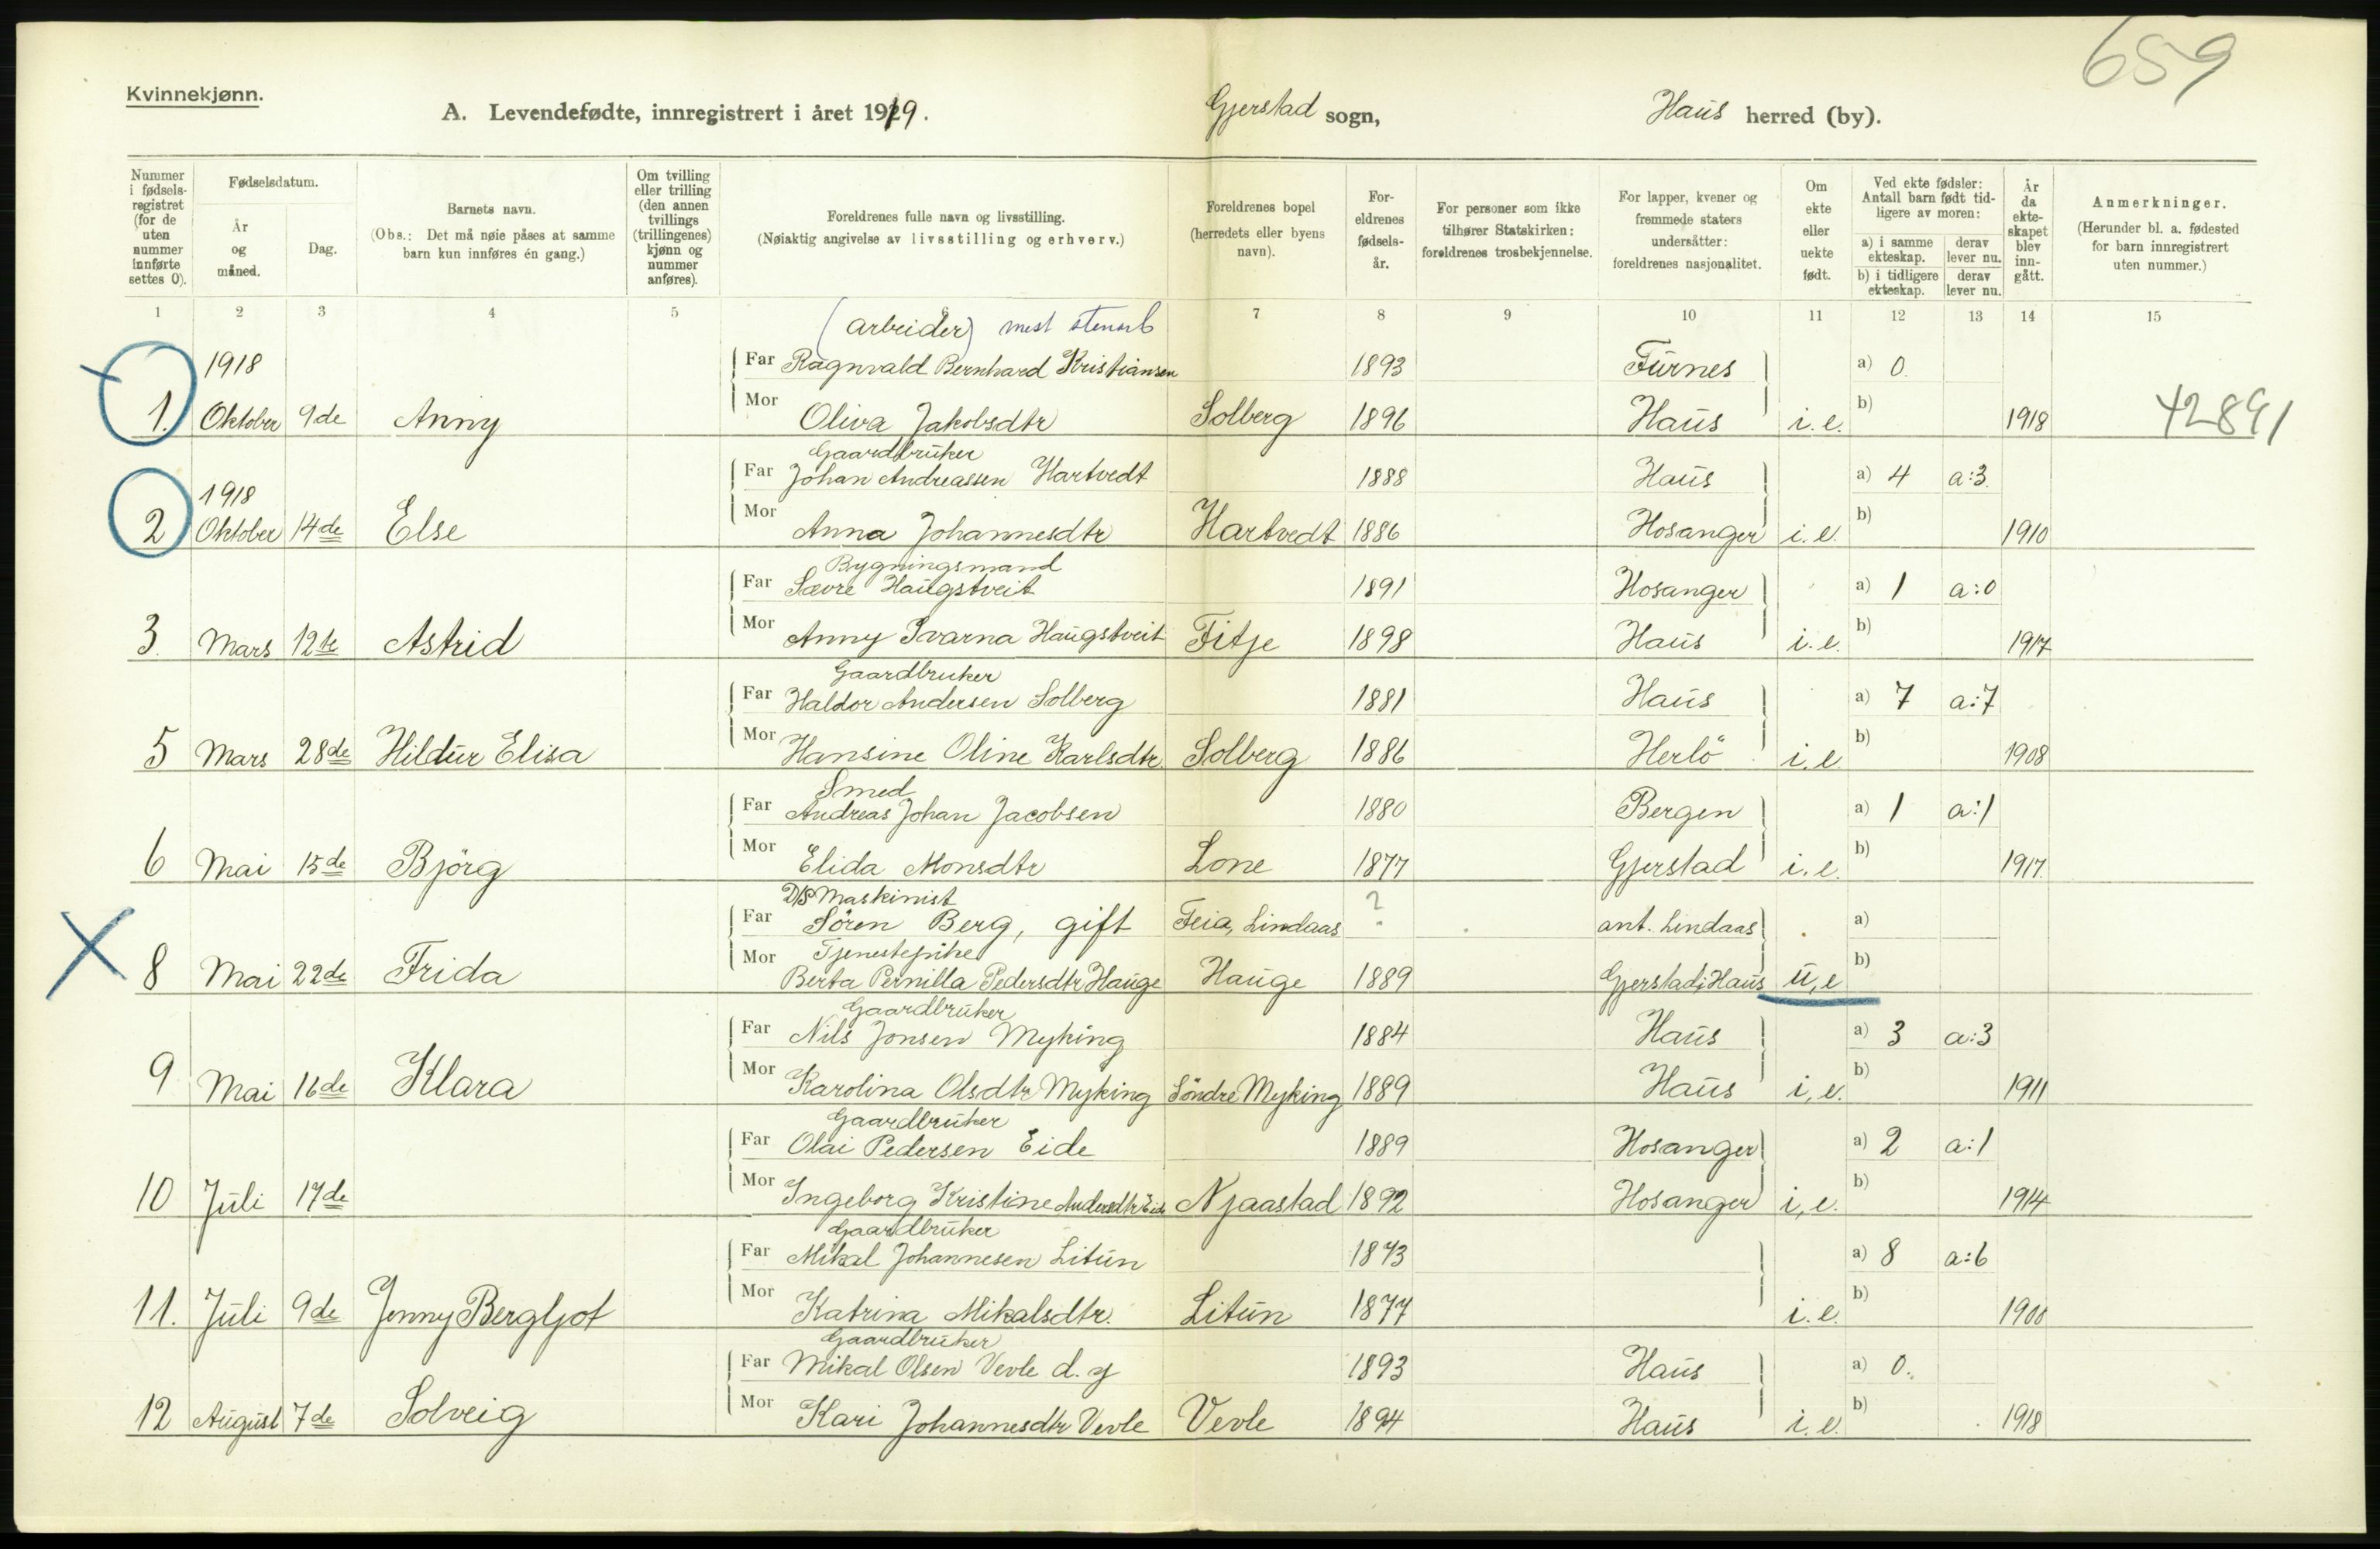 659
Kvinnekjønn.
A. Levendefødte, innregistrert i året 1919. Gjerstad sogn, Haus herred (by).
Nummer i fødselsregistret (for de uten nummer innførte settes 0).
Fødselsdatum.
År og måned.
Dag.
Barnets navn.
(Obs.: Det må nøie påses at samme barn kun innføres én gang.)
Om tvilling eller trilling (den annen tvillings (trillingenes) kjønn og nummer anføres).
Foreldrenes fulle navn og livsstilling.
(Nøiaktig angivelse av livsstilling og erhverv.)
Foreldrenes bopel (herredets eller byens navn).
Foreldrenes fødselsår.
For personer som ikke tilhører Statskirken: foreldrenes trosbekjennelse.
For lapper, kvener og fremmede staters undersåtter: foreldrenes nasjonalitet.
Om ekte eller uekte født.
Ved ekte fødsler: Antall barn født tidligere av moren:
a) i samme ekteskap. derav lever nu.
b) i tidligere ekteskap. derav lever nu.
År da ekteskapet blev inngått.
Anmerkninger.
(Herunder bl. a. fødested for barn innregistrert uten nummer.)
1 2 3 4 5 6 7 8 9 10 11 12 13 14 15
(arbeider) mest stenarb
1918 Far Ragnvald Bernhard Kristiansen 1893 Furnes a) 0.
1. Oktober 9de Anny Mor Oliva Jakobsdtr Solberg 1896 Haus i.e. b) 1918 42891
Gaardbruker
1918 Far Johan Andreassen Hartvedt 1888 Haus a) 4 a:3.
2 Oktober 14de Else Mor Anna Johannesdtr Hartvedt 1886 Hosanger i.e. b) 1910
Bygningsmand
Far Sævre Haugstveit 1891 Hosanger a) 1 a:0
3. Mars 12te Astrid Mor Anny Svarna Haugstveit Fitje 1898 Haus i.e. b) 1917
Gaardbruker
Far Haldor Andersen Solberg 1881 Haus a) 7 a:7
5 Mars 28de Hildur Elisa Mor Hansine Oline Karlsdtr. Solberg 1886 Herlö i.e. b) 1908
Smed
Far Andreas Johan Jacobsen 1880 Bergen a) 1 a:1
6 Mai 15de Björg Mor Elida Monsdtr Lone 1877 Gjerstad i.e. b) 1917.
D/S Maskinist
Far Sören Berg, gift Feia, Lindaas ? ant. Lindaas a)
Tjenestepike
8 Mai 22de Frida Mor Berta Pernilla Pedersdtr Hauge Hauge 1889 Gjerstad i Haus u,e b)
Gaardbruker
Far Nils Jonsen Myking 1884 Haus a) 3 a:3
9 Mai 16de Klara Mor Karolina Olsdtr Myking Söndre Myking 1889 Haus i,e. b) 1911
Gaardbruker
Far Olai Pedersen Eide 1889 Hosanger a) 2 a:1
10 Juli 17de Mor Ingeborg Kristine Andersdtr Eide Njaastad 1892 Hosanger i,e. b) 1914
Gaardbruker
Far Mikal Johannesen Litun 1873 a) 8 a:6
11. Juli 9de Jenny Bergljot Mor Katrina Mikalsdtr. Litun 1877 i.e. b) 1900
Gaardbruker
Far Mikal Olsen Vevle d.y 1893 Haus a) 0.
12 August 7de Solveig Mor Kari Johannesdtr Vevle Vevle 1894 Haus i.e. b) 1918